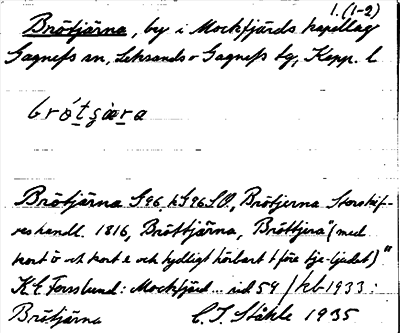 1.(1-2)
Brötjärna, by i Mockfjärds kapellag
Gagnefs sn, Leksands o Gagnefs tg, Kopp. l
Brötjärna S96, hS96 SV., Brötjerna Storskif-
teshandl. 1816, Bröttjärna, "Bröttjera" (med
kort ö och kort e och tydligt hörbart t före tje-ljudet)"
K. E. Forsslund: Mockfjärd... sid 59 / hb 1933:
Brötjärna C. I. Ståhle 1935